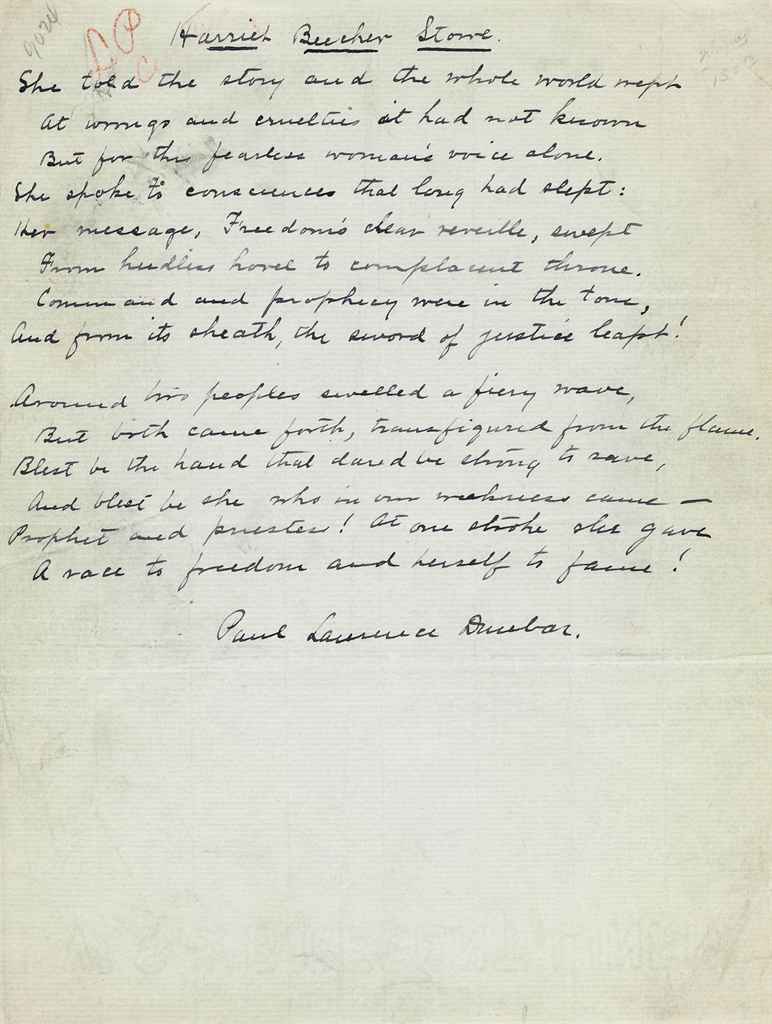 9024
Harriet Beecher Stowe.
She told the story and the whole world wept
At wrongs and cruelties it had not known
But for this fearless woman's voice alone.
She spoke to consciences that long had slept:
Her message, Freedom's clear reveille, swept
From heedless hovel to complacent throne.
Command and prophecy were in the tone,
And from its sheath, the sword of justice leapt!
Around two peoples swelled a fiery wave,
But both came forth, transfigured from the flame.
Blest be the hand that dared be strong to save,
And blest be she who in our weakness came —
Prophet and priestess! At one stroke she gave
A race to freedom and herself to fame!
Paul Laurence Dunbar.